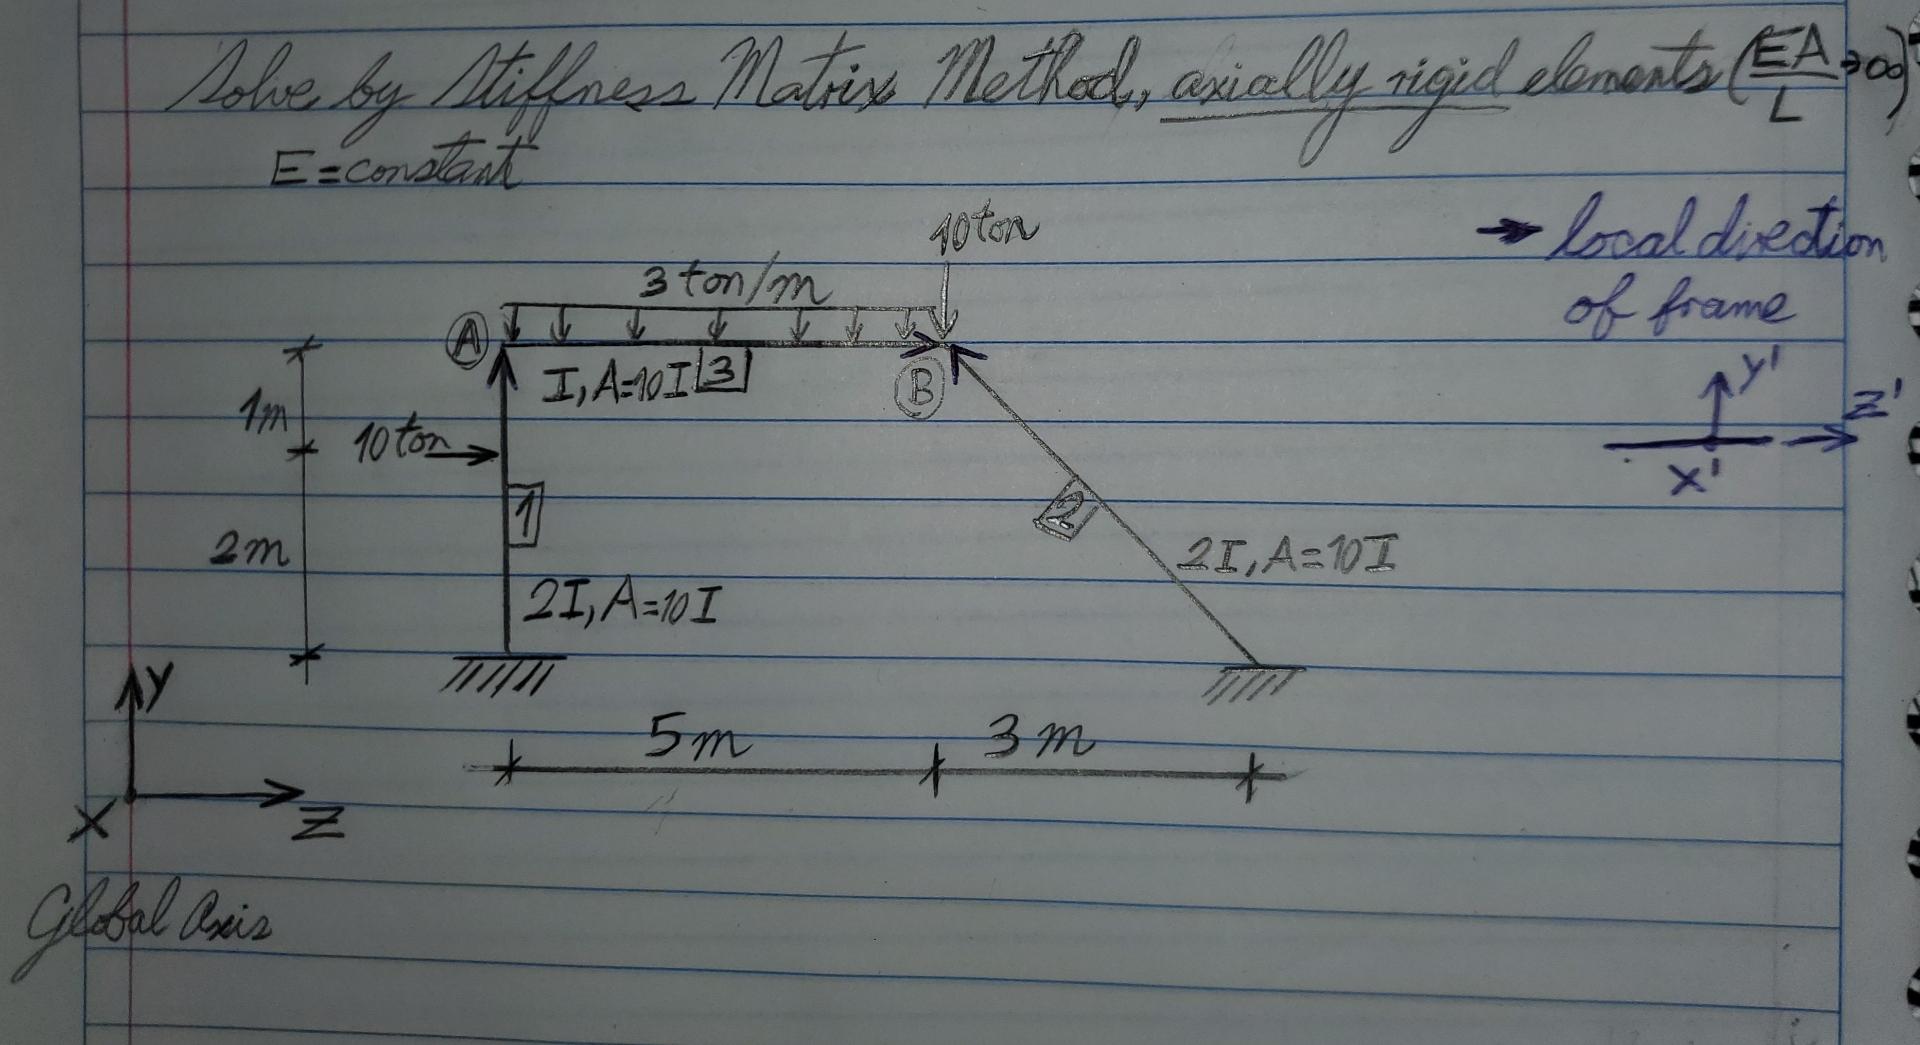 Solve by Stiffness Matrix Method, axially rigid elements (EA/L→∞)
E=constant
→ local direction
of frame
10ton
3 ton/m
A
B
I, A=10I 3
1m
10 ton
1
2m
2I, A=10I
2
2I, A=10I
Y'
Z'
X'
Y
X
Z
5m
3m
Global Axis